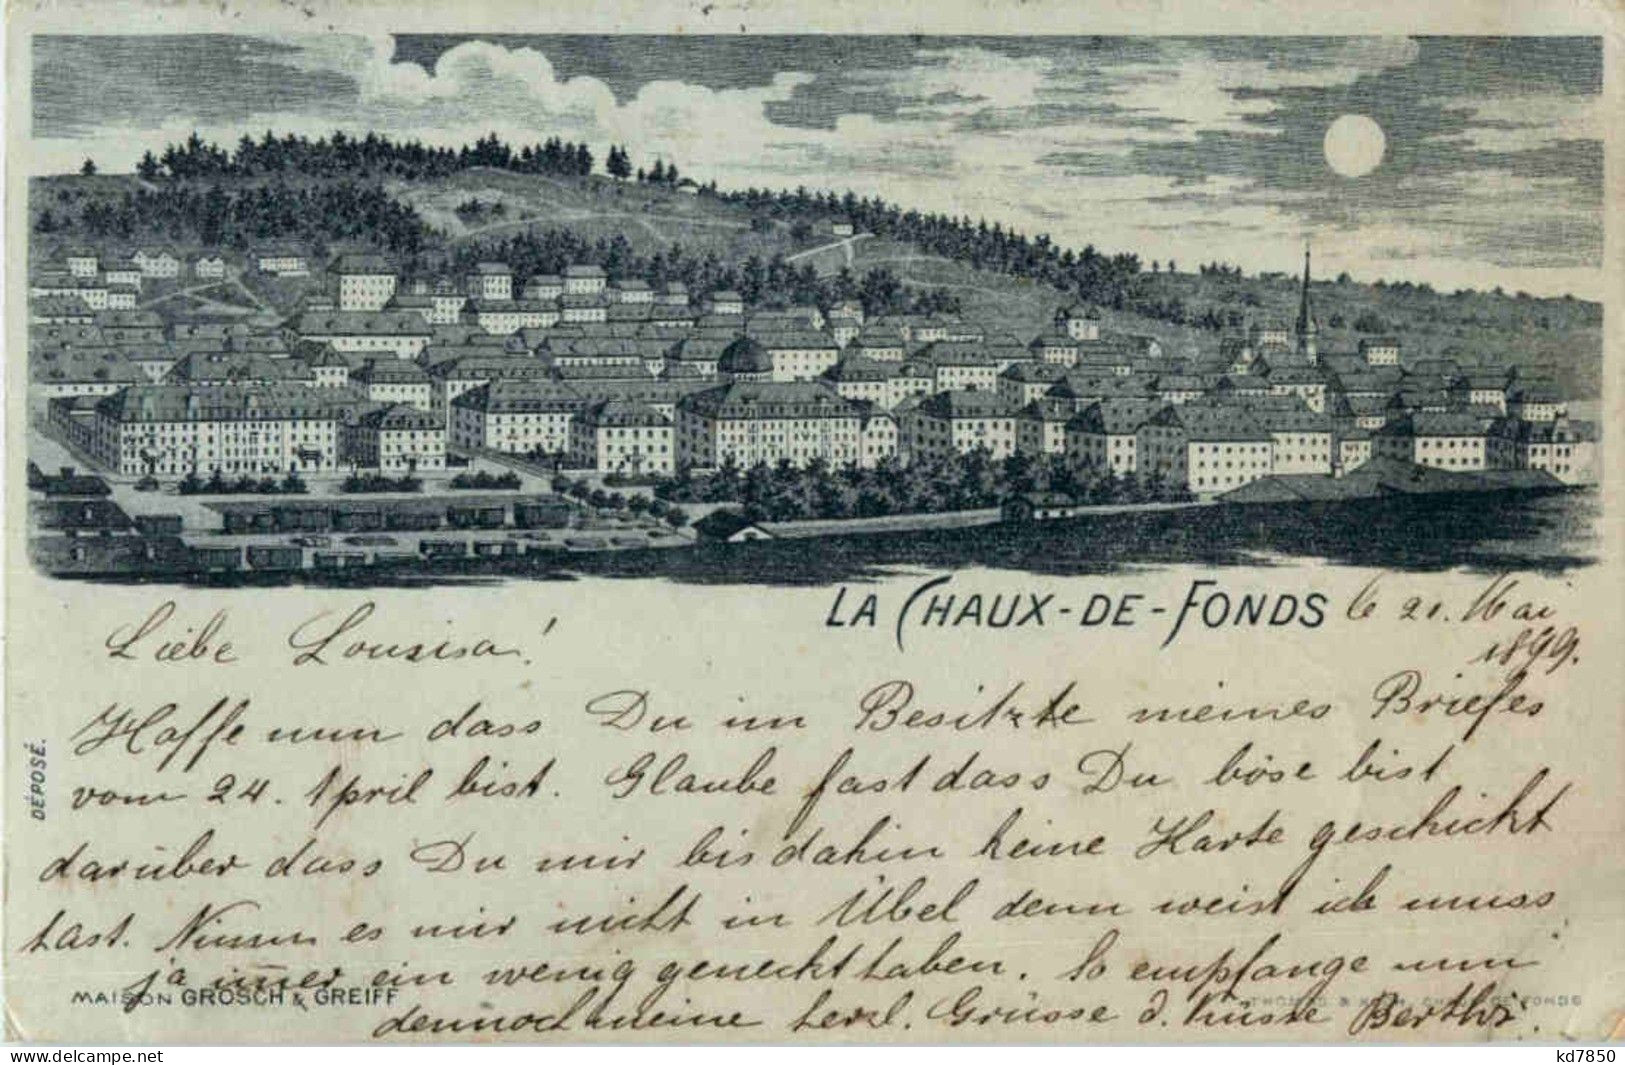 LA CHAUX-DE-FONDS le 21. Mai
1899.
Liebe Lousisa!
Hoffe nun dass Du im Besitzte meines Briefes
vom 24. April bist. Glaube fast dass Du böse bist
darüber dass Du mir bis dahin keine Karte geschickt
hast. Nimm es mir nicht in Übel denn weist ich muss
ja imer ein wenig geneckt haben. So empfange nun
dennoch meine herzl. Grüsse & Küsse Berthi.
DÉPOSÉ.
MAISON GROSCH & GREIFF
CHAUX-DE-FONDS
www.delcampe.net
kd7850